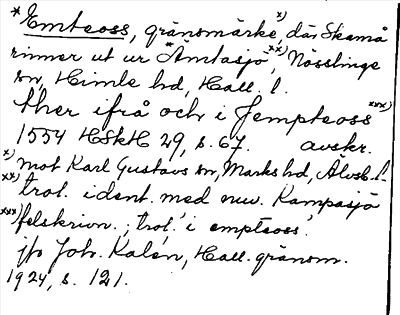 *Emteoss, gränsmärke, x) där Skamå
rinner ut ur *Ämtasjö, xx) Nösslinge
sn, Himle hd, Hall. l.
ther ifrå och i Jempteoss xxx)
1554 HSkH 29, s. 67. avskr.
x) mot Karl Gustavs sn, Marks hd, Älvsb. l.
xx) trol. ident. med nuv. Kampasjö
xxx) felskrivn.; trol. 'i empteoss'
jfr Joh. Kalén, Hall. gränsm.
1924, s. 121.